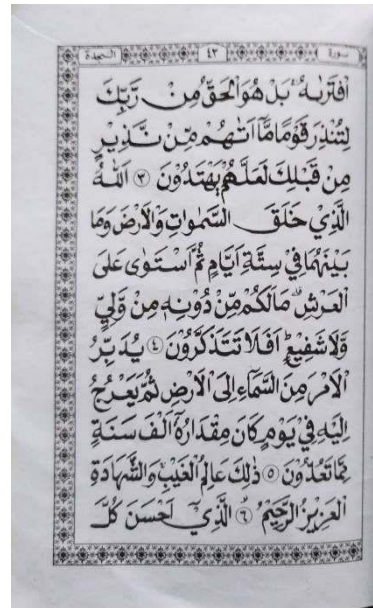 سورة ٤٣ السجدة
افْتَرٰىهُ ۚ بَلْ هُوَ الْحَقُّ مِنْ رَّبِّكَ
لِتُنْذِرَ قَوْمًا مَّآ اَتٰىهُمْ مِّنْ نَّذِيْرٍ
مِّنْ قَبْلِكَ لَعَلَّهُمْ يَهْتَدُوْنَ ﴿٣﴾ اَللّٰهُ
الَّذِيْ خَلَقَ السَّمٰوٰتِ وَالْاَرْضَ وَمَا
بَيْنَهُمَا فِيْ سِتَّةِ اَيَّامٍ ثُمَّ اسْتَوٰى عَلَى
الْعَرْشِ ۗ مَا لَكُمْ مِّنْ دُوْنِهٖ مِنْ وَّلِيٍّ
وَّلَا شَفِيْعٍ ۗ اَفَلَا تَتَذَكَّرُوْنَ ﴿٤﴾ يُدَبِّرُ
الْاَمْرَ مِنَ السَّمَآءِ اِلَى الْاَرْضِ ثُمَّ يَعْرُجُ
اِلَيْهِ فِيْ يَوْمٍ كَانَ مِقْدَارُهٗٓ اَلْفَ سَنَةٍ
مِّمَّا تَعُدُّوْنَ ﴿٥﴾ ذٰلِكَ عَالِمُ الْغَيْبِ وَالشَّهَادَةِ
الْعَزِيْزُ الرَّحِيْمُ ﴿٦﴾ الَّذِيْٓ اَحْسَنَ كُلَّ